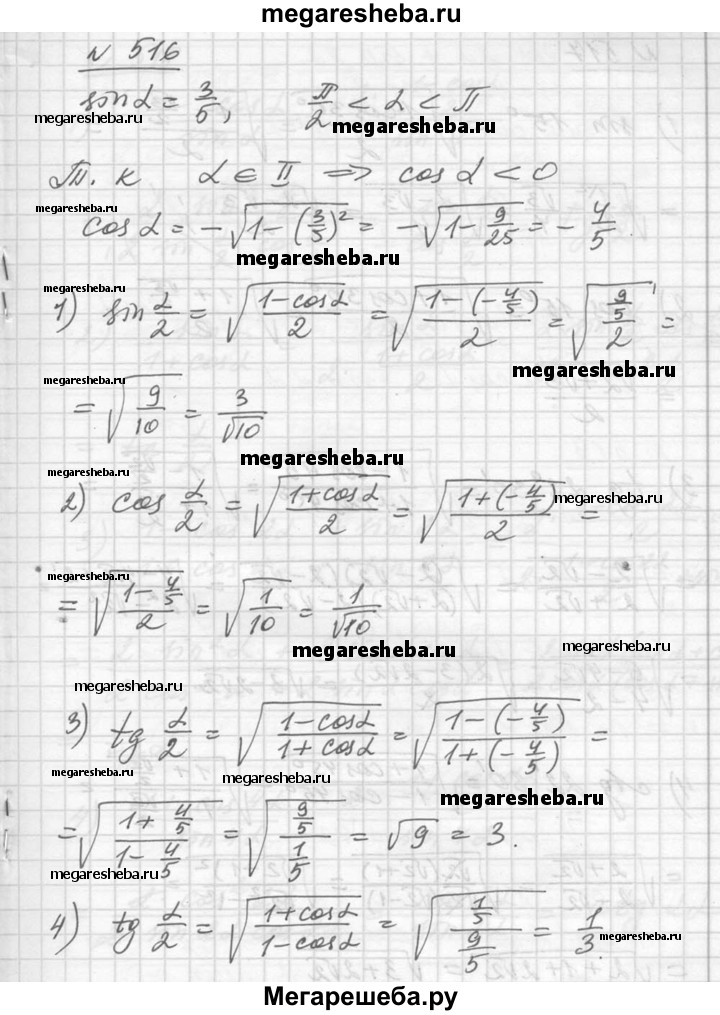 megaresheba.ru
№ 516
sin α = 3/5, π/2 < α < π
megaresheba.ru megaresheba.ru
Т. к α ∈ II ⇒ cos α < 0
megaresheba.ru
cos α = -√(1-(3/5)²) = -√(1-9/25) = -4/5.
megaresheba.ru
1) sin α/2 = √((1-cosα)/2) = √((1-(-4/5))/2) = √((9/5)/2) =
megaresheba.ru
megaresheba.ru
= √(9/10) = 3/√10
megaresheba.ru
megaresheba.ru
2) cos α/2 = √((1+cosα)/2) = √((1+(-4/5))/2) =
megaresheba.ru
megaresheba.ru
= √((1-4/5)/2) = √(1/10) = 1/√10
megaresheba.ru
megaresheba.ru
megaresheba.ru
3) tg α/2 = √((1-cosα)/(1+cosα)) = √((1-(-4/5))/(1+(-4/5))) =
megaresheba.ru
megaresheba.ru
megaresheba.ru
= √((1+4/5)/(1-4/5)) = √((9/5)/(1/5)) = √9 = 3.
megaresheba.ru
4) tg α/2 = √((1+cosα)/(1-cosα)) = √((1/5)/(9/5)) = 1/3.
megaresheba.ru
Мегарешеба.ру